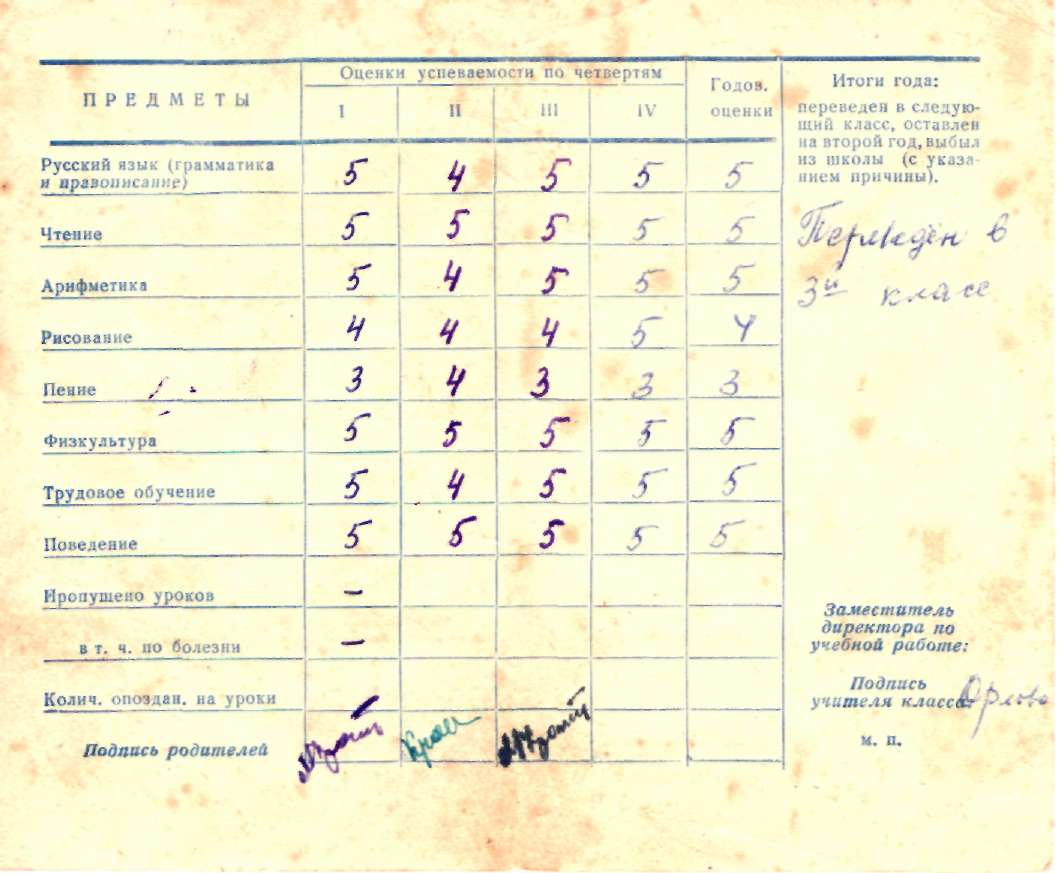 ПРЕДМЕТЫ
Оценки успеваемости по четвертям
I II III IV
Годов.
оценки
Русский язык (грамматика
и правописание) 5 4 5 5 5
Чтение 5 5 5 5 5
Арифметика 5 4 5 5 5
Рисование 4 4 4 5 4
Пение 3 4 3 3 3
Физкультура 5 5 5 5 5
Трудовое обучение 5 4 5 5 5
Поведение 5 5 5 5 5
Пропущено уроков –
в т. ч. по болезни –
Колич. опоздан. на уроки
Подпись родителей
Итоги года:
переведен в следую-
щий класс, оставлен
на второй год, выбыл
из школы (с указа-
нием причины).
Переведён в
3й классе
Заместитель
директора по
учебной работе:
Подпись
учителя класса Орлова
м. п.